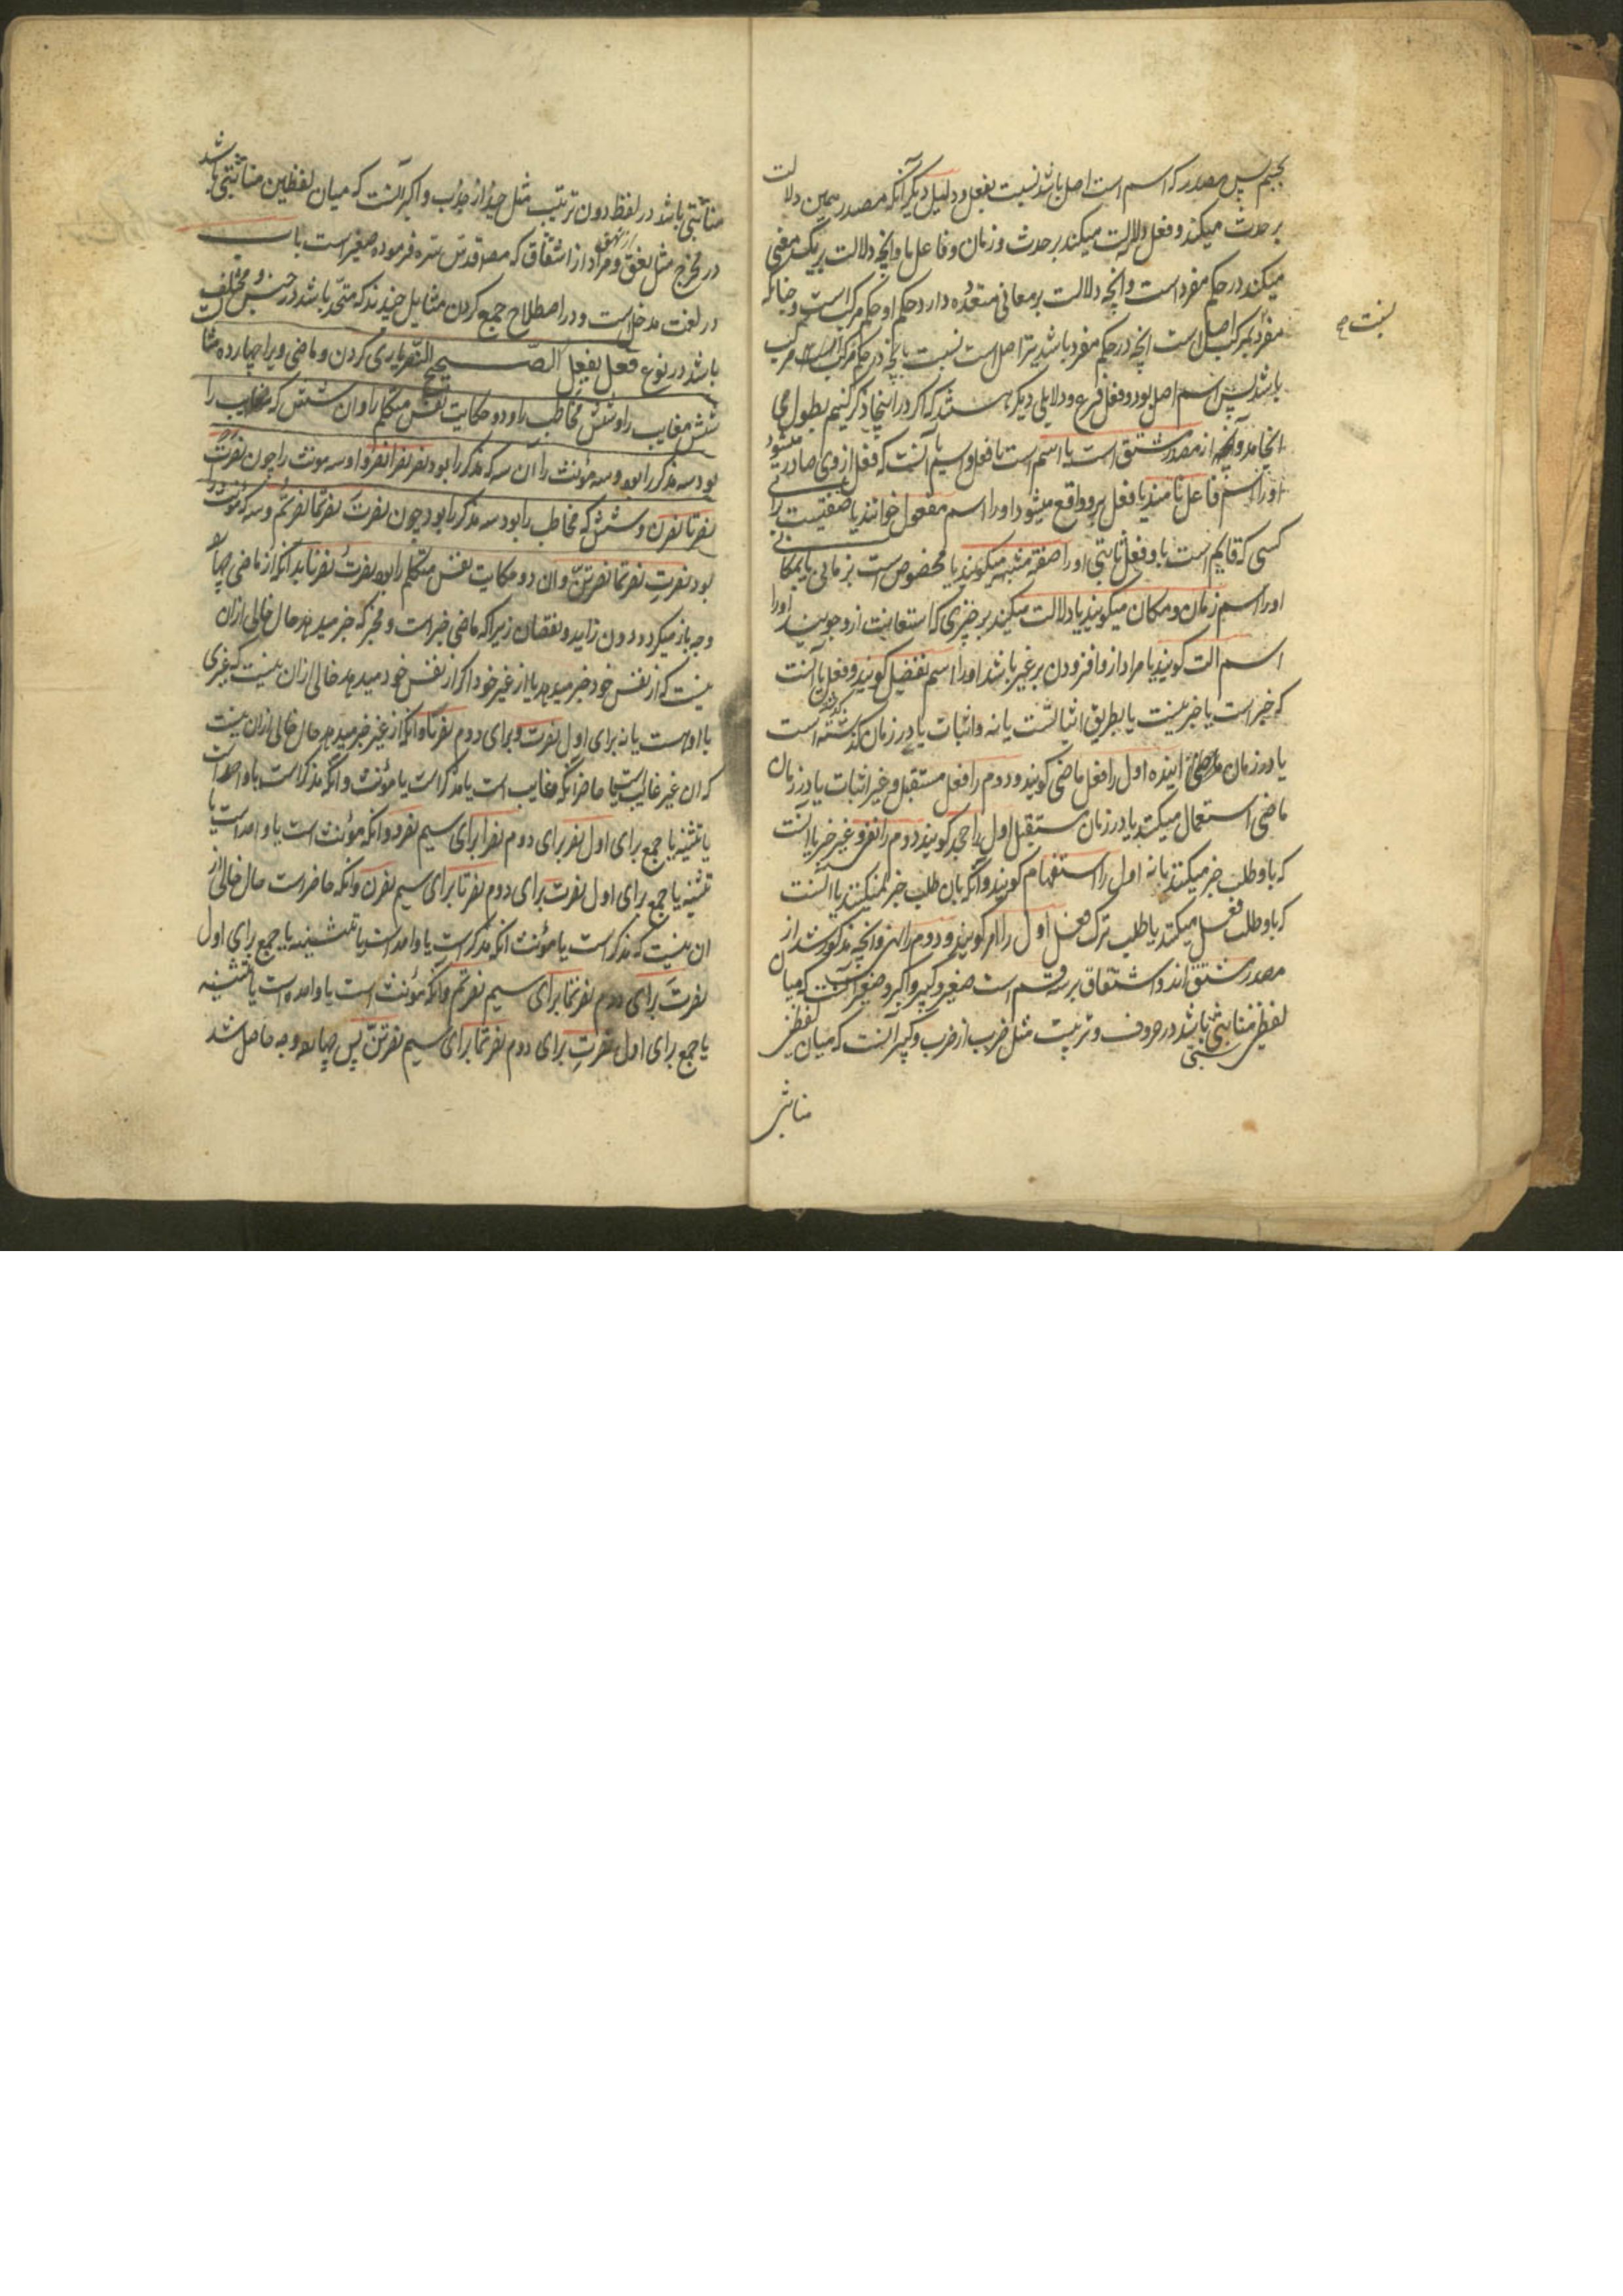 بجیم پس مصدر که اسم است اصل باشد نسبت بفعل و دلیل دیگر آنکه مصدر همین دلالت
بر حدث میکند و فعل دلالت میکند بر حدث و زمان و فاعل ما و آنچه دلالت بر یک معنی
میکند در حکم مفرد است و آنچه دلالت بر معانی متعدده دارد حکم او حکم مرکب است و چنانکه
مفرد بمرکب اصل است آنچه در حکم مفرد باشد نیز اصل است نسبت بآنچه در حکم مرکب
نسبت صح
باشد پس اسم اصل بود و فعل فرع و دلایلی دیگر هستند که اگر در اینجا ذکر کنیم بطول می
انجامد و آنچه از مصدر مشتق است یا اسم است یا فعل و اسم یا آنست که فعل از وی صادر میشود
اورا اسم فاعل نامند یا فعل برو واقع میشود اورا اسم مفعول خوانند یا صفتیست برای
کسی که قایم است باو فعل ثابتی اورا صفة مشبهه میکویند یا مخصوص است بزمانی یا بمکانی
اورا اسم زمان و مکان میکویند یا دلالت میکند بر چیزی که استعانت ازو جویند اورا
اسم الت کویند یا مراد ازو افزودن بر غیر باشد اورا اسم تفضیل کویند و فعل یا آنست
که خبر است یا خبر نیست یا بطریق اثباتست یا نه و اثبات یا در زمان گذشته است
یا در زمان اینده اول را فعل ماضی کویند و دوم را فعل مستقبل و غیر اثبات یا در زمان
ماضی استعمال میکنند یا در زمان مستقبل اول را جحد کویند دوم را نفی و غیر خبر یا آنست
که باو طلب خبر میکنند یا نه اول را استفهام کویند و آنکه بان طلب خبر نمیکنند یا آنست
که باو طلب فعل میکنند یا طلب ترک فعل اول را امر کویند و دوم را نهی و آنچه مذکور شد از
مصدر مشتق اند و اشتقاق بر سه قسم است صغیر و کبیر و اکبر و صغیر آنست که میان
لفظین مناسبتی باشد در حروف و ترتیب مثل ضرب از ضرب و کبیر آنست که میان لفظین
مناسبتی
مناسبتی باشد در لفظ دون ترتیب مثل جبذ از جذب و اکبر آنست که میان لفظین مناسبتی باشد
در مخرج مثل نعق از نهق و مراد از اشتقاق که مصنف قدس سره فرموده صغیر است باب
در لغت مدخل است و در اصطلاح جمع کردن مثایل چیزند که متحد باشد در جنس و مختلف
باشد در نوع فعل یفعل الصحیح النصر یاری کردن و ماضی ویرا چهارده مثال
شش مغایب را و شش مخاطب را و دو حکایت نفس متکلم را و ان شش که مغایب را
بود سه مذکر را بود و سه مؤنث را آن سه که مذکر را بود نصر نصرا نصروا و سه مونث را چون نصرت
نصرتا نصرن و شش که مخاطب را بود سه مذکر را بود چون نصرت نصرتما نصرتم و سه که مؤنث را
بود نصرت نصرتما نصرتن و ان دو حکایت نفس متکلم را بود نصرت نصرنا بدانکه از ماضی چهارده
وجه باز میکردد دون زاید و نقصان زیرا که ماضی خبر است و مخبر که خبر میدهد حال خالی ازان
نیست که از نفس خود خبر میدهد یا از غیر خود اگر از نفس خود میدهد خالی ازان نیست که غیری
با او هست یا نه برای اول نصرت و برای دوم نصرنا و آنکه از غیر خبر میدهد حال خالی ازان نیست
که ان غیر غایب است یا حاضر آنکه غایب است یا مذکر است یا مؤنث و آنکه مذکر است یا واحد است
یا تثنیه یا جمع برای اول نصر برای دوم نصرا برای سیم نصروا و آنکه مؤنث است یا واحد است یا
تثنیه یا جمع برای اول نصرت برای دوم نصرتا برای سیم نصرن و آنکه حاضرست حال خالی از
ان نیست که مذکر است یا مؤنث آنکه مذکر است یا واحد است یا تثنیه یا جمع برای اول
نصرت برای دوم نصرتما برای سیم نصرتم و آنکه مؤنث است یا واحده است یا تثنیه
یا جمع برای اول نصرت برای دوم نصرتما برای سیم نصرتن پس چهارده وجه حاصل شد